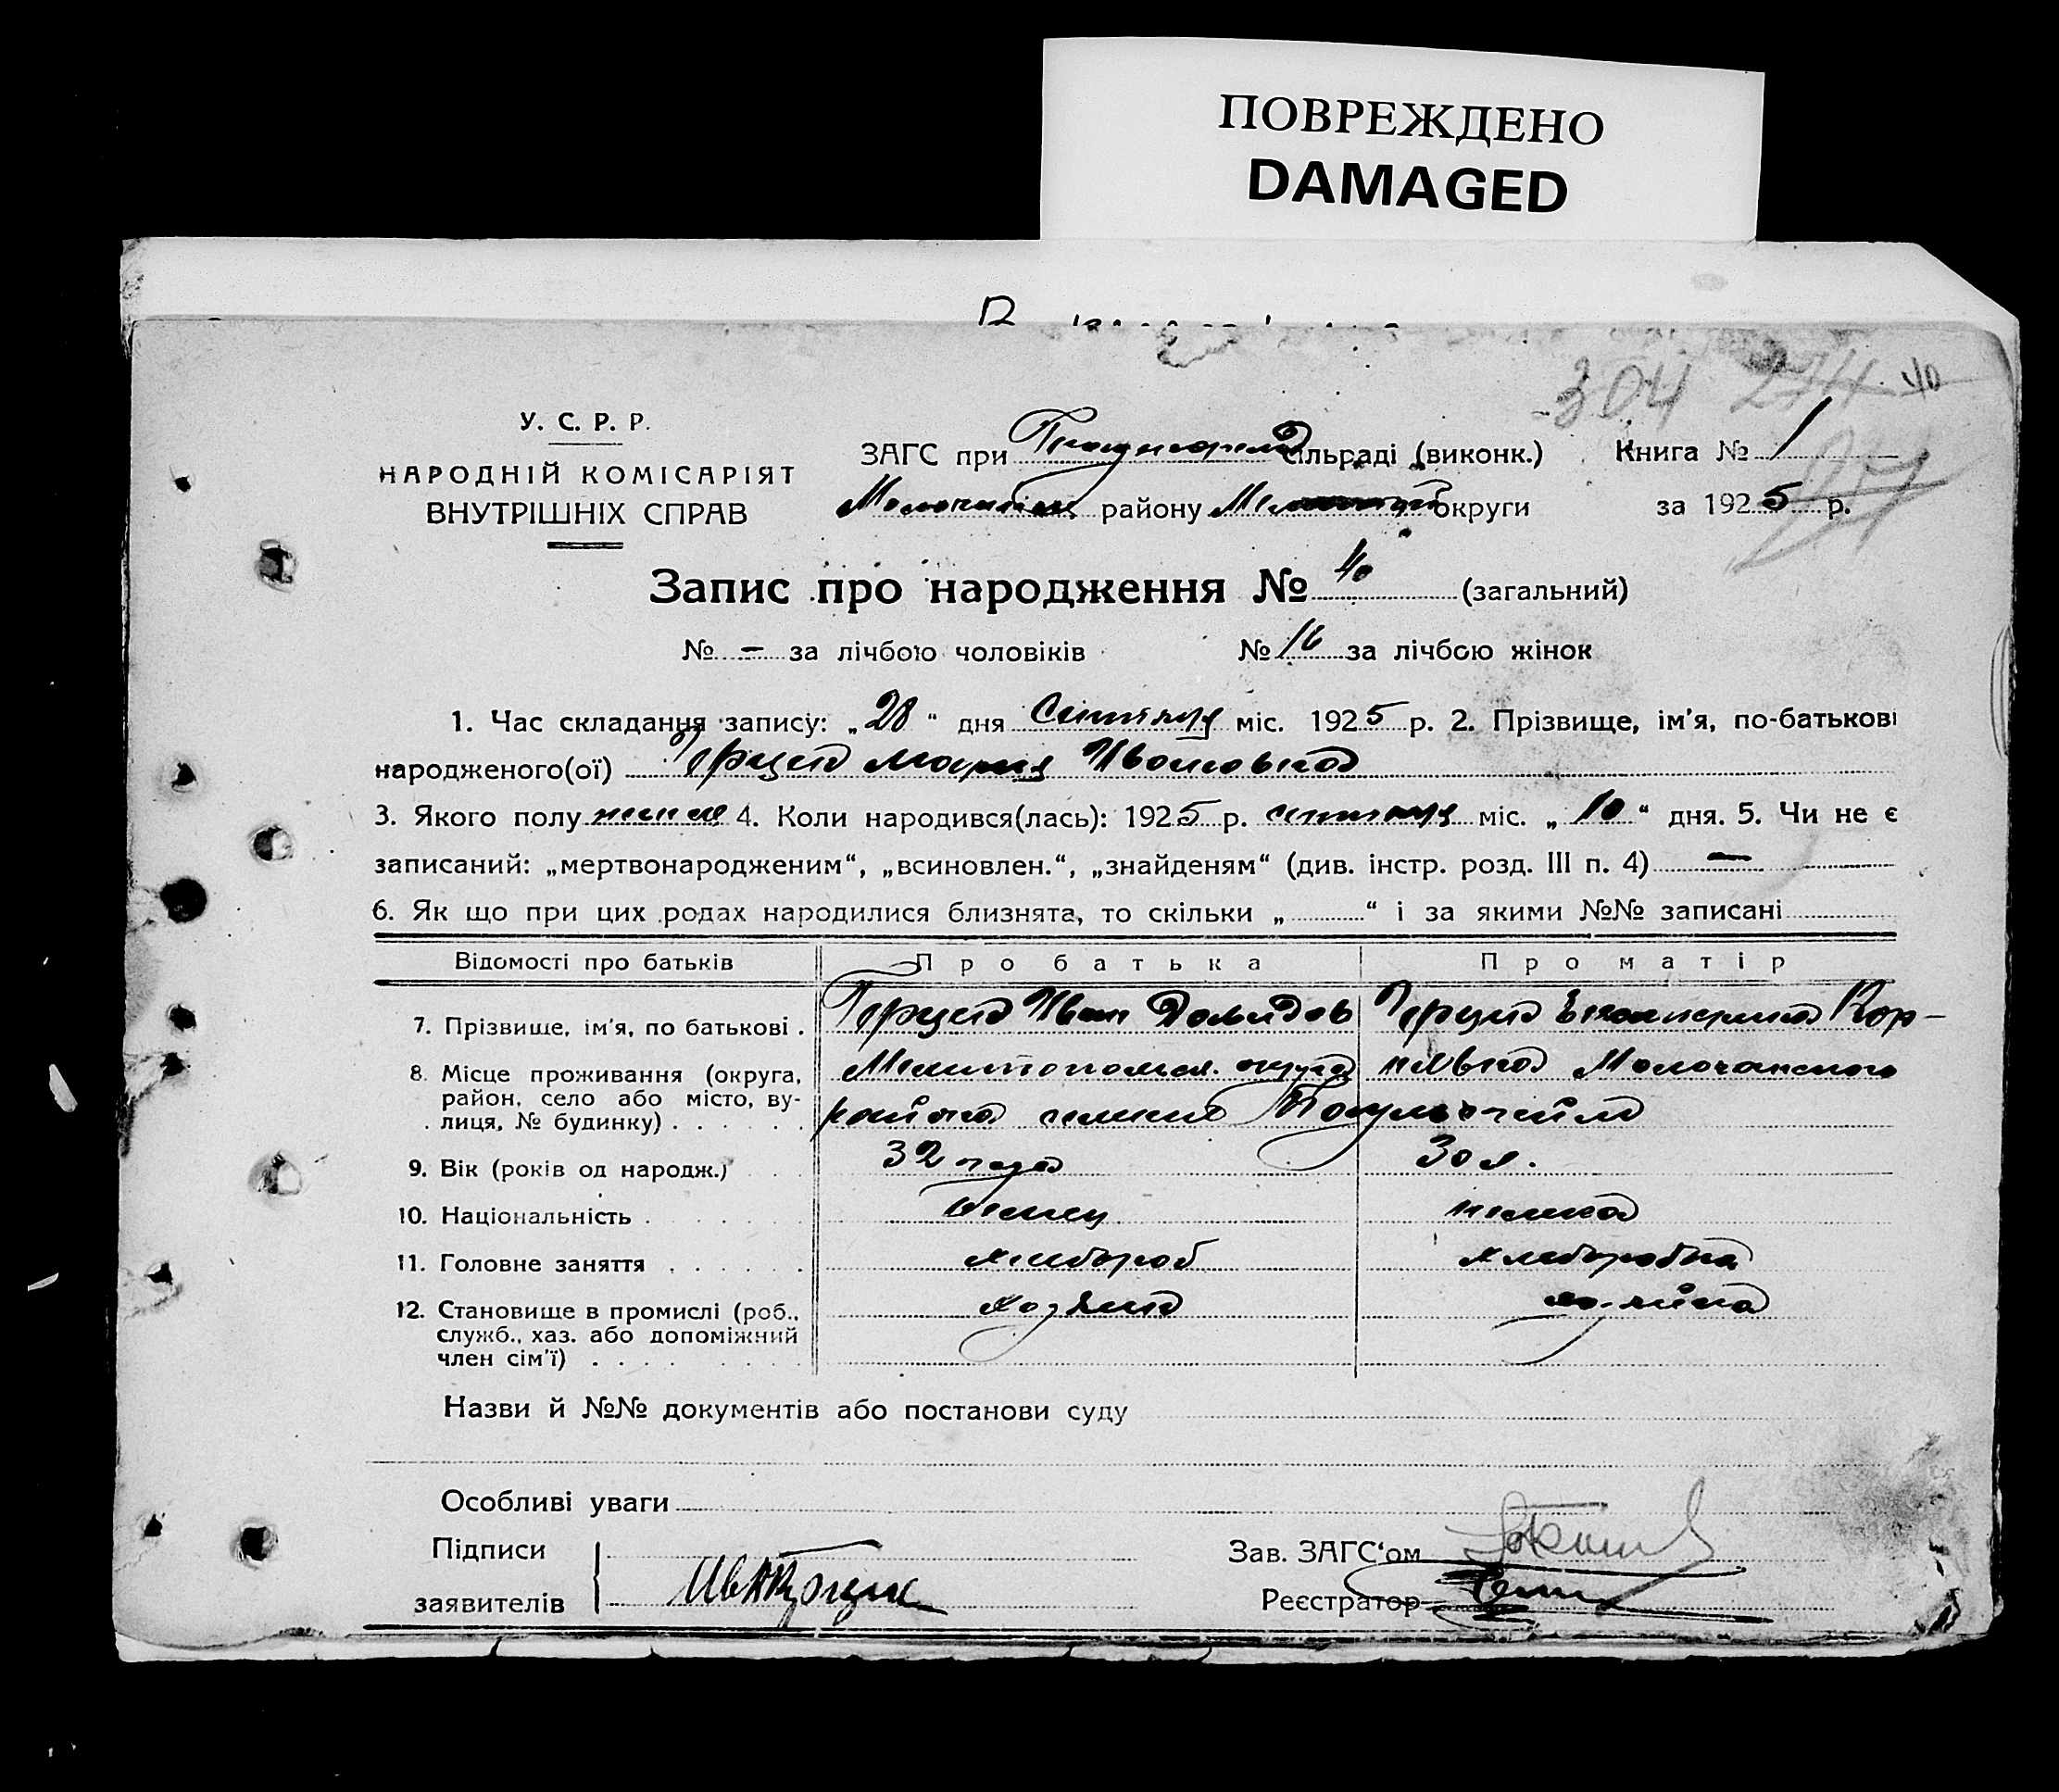 ПОВРЕЖДЕНО
DAMAGED
304 274 40
У. С. Р. Р.
НАРОДНІЙ КОМІСАРІЯТ
ВНУТРІШНІХ СПРАВ
ЗАГС при сільраді (виконк.) Книга № 1
району округи за 1925 р.
Запис про народження № 40 (загальний)
№ - за лічбою чоловіків № 16 за лічбою жінок
1. Час складання запису: „28“ дня Сентября міс. 1925 р. 2. Прізвище, ім'я, по-батькові
народженого(ої) Мария Ивановна
3. Якого полу 4. Коли народився(лась): 1925 р. сентября міс. „10“ дня. 5. Чи не є
записаний: „мертвонародженим“, „всиновлен.“, „знайденям“ (див. інстр. розд. III п. 4) —
6. Як що при цих родах народилися близнята, то скільки „ “ і за якими №№ записані
Відомості про батьків Про батька Про матір
7. Прізвище, ім'я, по батькові . Иван Давидов Екатерина Кор-
8. Місце проживання (округа, район, село або місто, вулиця, № будинку) . . . . . . Мелитопольск. округа нильевна Молочанского
района
9. Вік (років од народж.) . . 32 года 30 л.
10. Національність . . . . . . немец немка
11. Головне заняття . . . . . . хлебороб хлеборобка
12. Становище в промислі (роб., служб., хаз. або допоміжний член сім'ї) . . . . хозяин хозяйка
Назви й №№ документів або постанови суду
Особливі уваги
Підписи
заявителів
Зав. ЗАГС'ом
Реєстратор